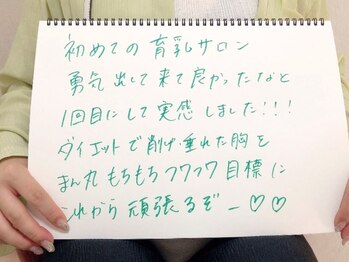 初めての育乳サロン
勇気出して来て良かったなと
1回目にして実感しました!!!
ダイエットで削げ垂れた胸を
まん丸もちもちフワフワ目標に
これから頑張るぞー♡♡